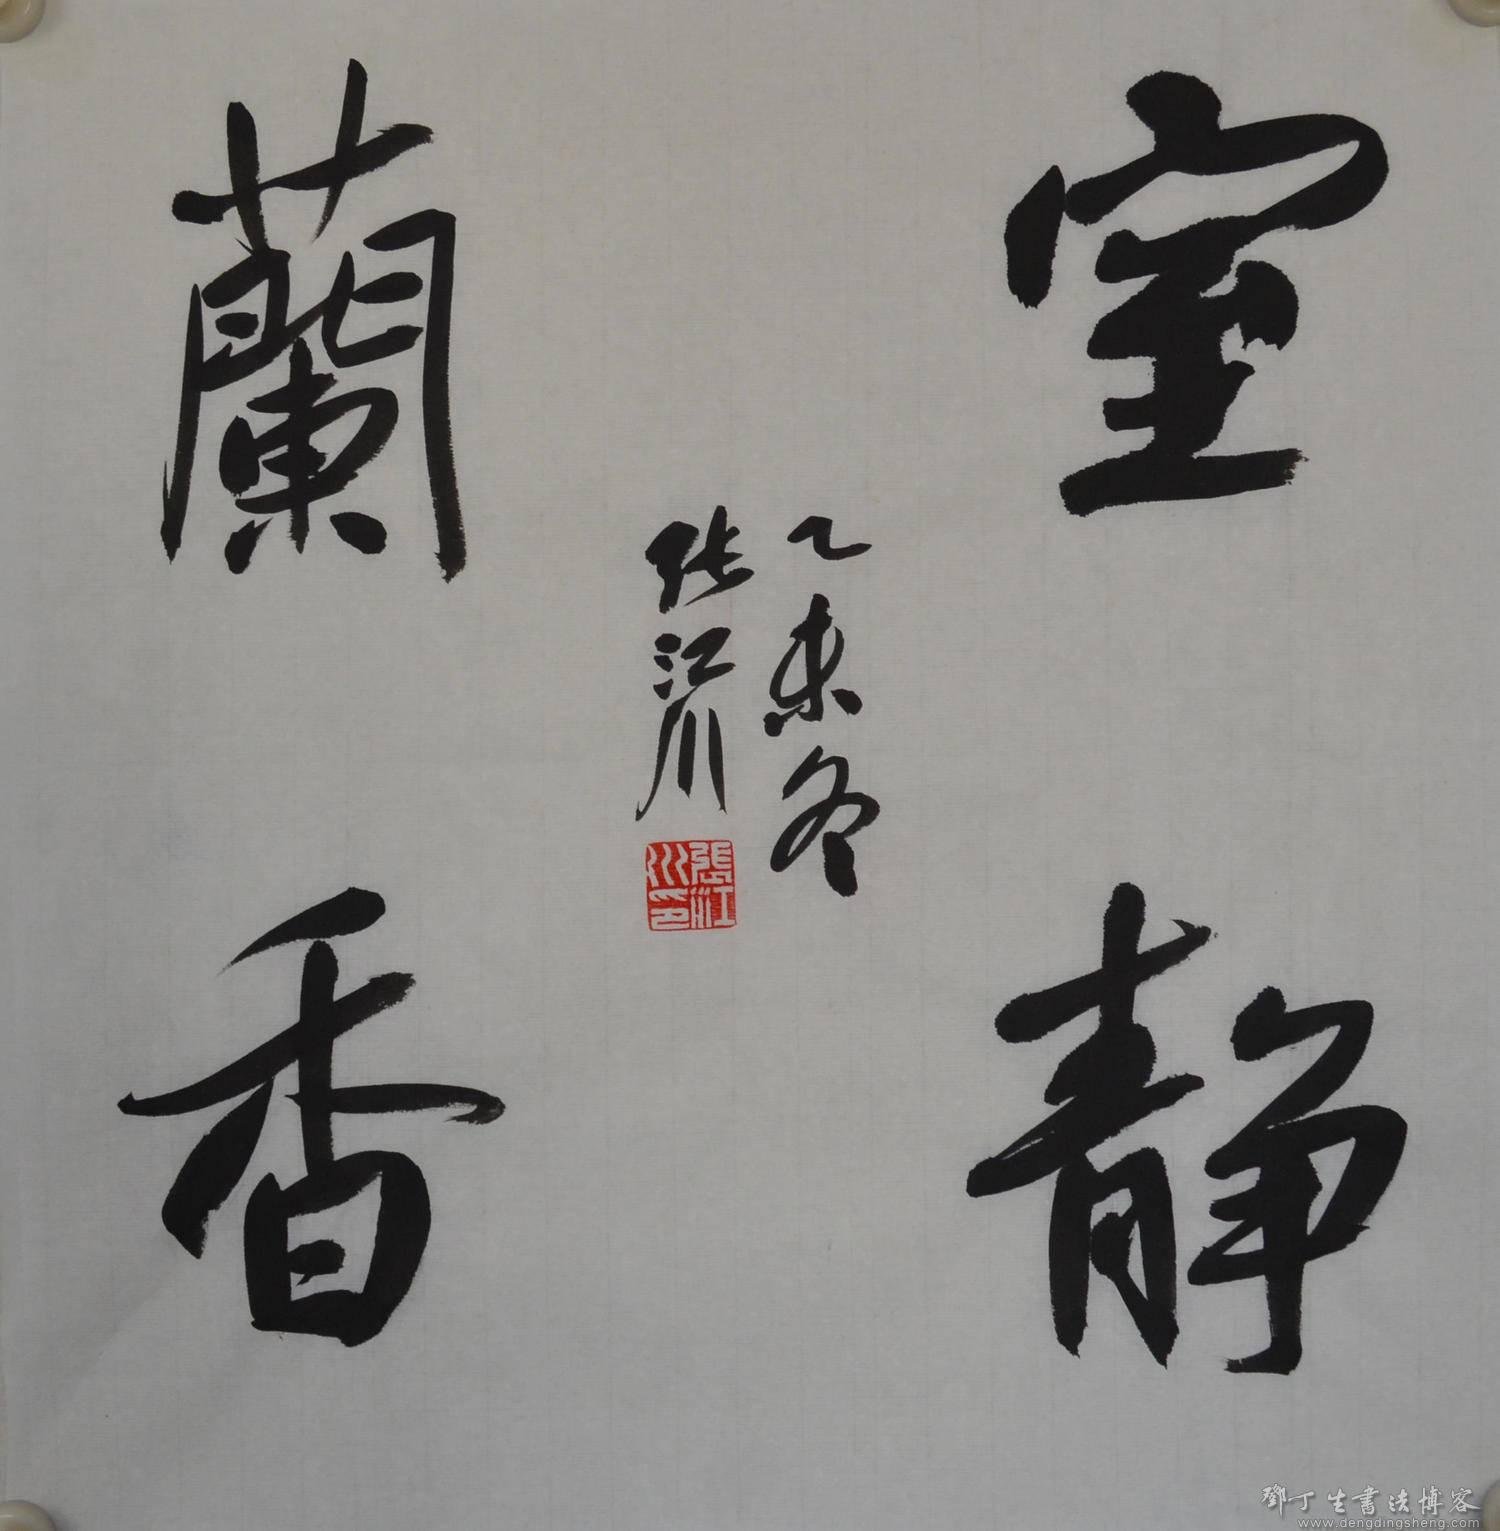 室静
蘭香
乙未冬
张江川
張江川印
鄧丁生書法博客
www.dengdingsheng.com